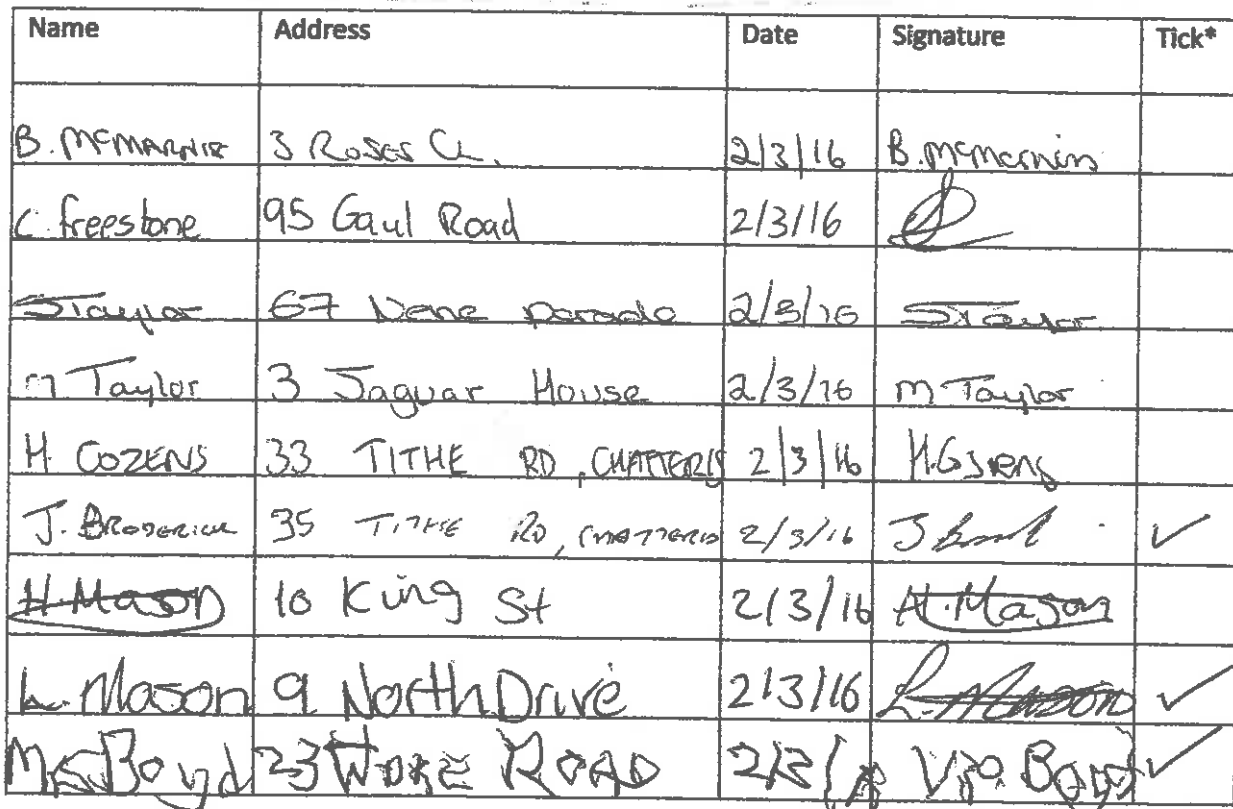 Name Address Date Signature Tick*
B. McMarnie 3 Roses CL. 2/3/16 B. McMarnin
C. freestone 95 Gaul Road 2/3/16
S Taylor 67 Nene parade 2/3/16 S Taylor
M Taylor 3 Jaguar House 2/3/16 M Taylor
H. COZENS 33 TITHE RD, CHATTERIS 2/3/16 H. Cozens
J. BRODERICK 35 TITHE RD, CHATTERIS 2/3/16 J ✓
H. Mason 10 King St 2/3/16 H. Mason
L. Mason 9 North Drive 2/3/16 L. Mason ✓
Boyd 23 ROAD Boyd ✓